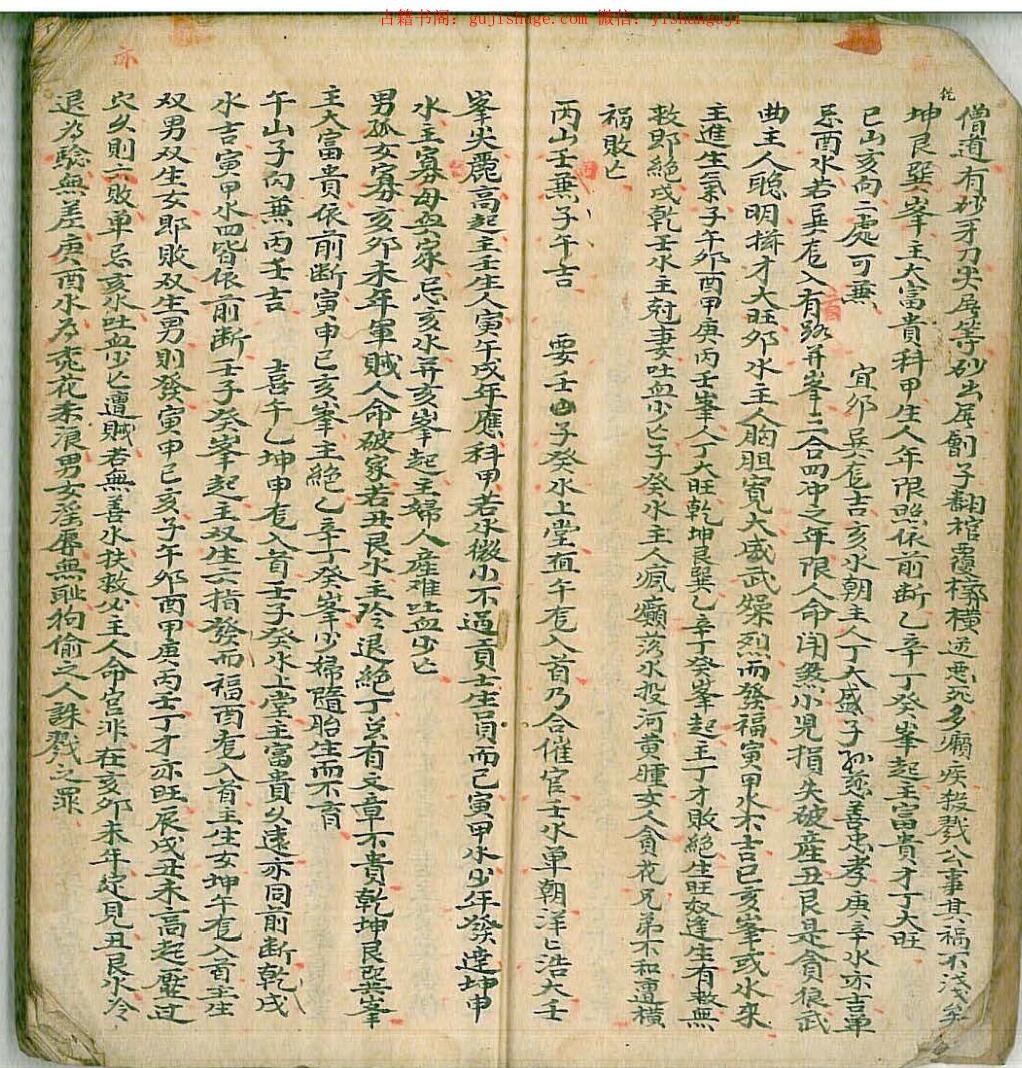 古籍书阁：gujishuge.com 微信：yishanguji
乾
僧道有砂牙刀尖屠等砂出屠劊子翻棺覆槨橫逆惡死多癩疾殺戮公事其禍不淺矣
坤艮巽峯主大富貴科甲生人年限照依前断乙辛丁癸峯起主富貴才丁大旺
巳山亥向二處可兼　宜卯巽龙吉亥水朝主人丁大盛子孙慈善忠孝庚辛水亦吉单
忌酉水若巽龙入有路开峯三合四冲之年限人命闰缢小児損失破產丑艮是貪狼武
曲主人聪明搓才大旺卯水主人胸胆寬大威武燥烈而發福寅甲水不吉巳亥峯或水來
主進生氣子午卯酉甲庚丙壬峯人丁大旺乾坤艮巽乙辛丁癸峯起主丁才敗絕生旺奴逢生有救無
救即絕戌乾壬水主尅妻吐血少亡子癸水主人瘋癲落水投河黃腫女人貪花兄弟不和遭橫
禍敗亡
丙山壬兼子午吉　要壬子癸水上堂直午龙入首乃合催官壬水单朝洋匕浩大壬
峯尖麗高起主壬生人寅午戌年應科甲若水微小不过貢士生員而已寅甲水少年發達坤申
水主寡母興家忌亥水开亥峯起主婦人産难吐血少亡
男孤女寡亥卯未年軍賊人命破家若丑艮水主冷退絕丁总有文章不貴乾坤艮巽峯
主大富貴依前断寅申巳亥峯主絕乙辛丁癸峯少婦墮胎生而不育
午山子向兼丙壬吉　喜午乙坤申龙入首壬子癸水上堂主富貴久遠亦同前断乾戌
水吉寅甲水四皆依前断壬子癸峯起主双生六指發而福酉龙入首主生女坤午龙入首主生
双男双生女即敗双生男則發寅申巳亥子午卯酉甲庚丙壬丁才亦旺辰戌丑未高起壓过
穴久則一敗单忌亥水吐血少亡遭賊若無善水扶救必主人命官非在亥卯未年定見丑艮水冷
退為驗無差庚酉水為桃花柔浪男女淫辱無耻狗偷之人誅戮之罪